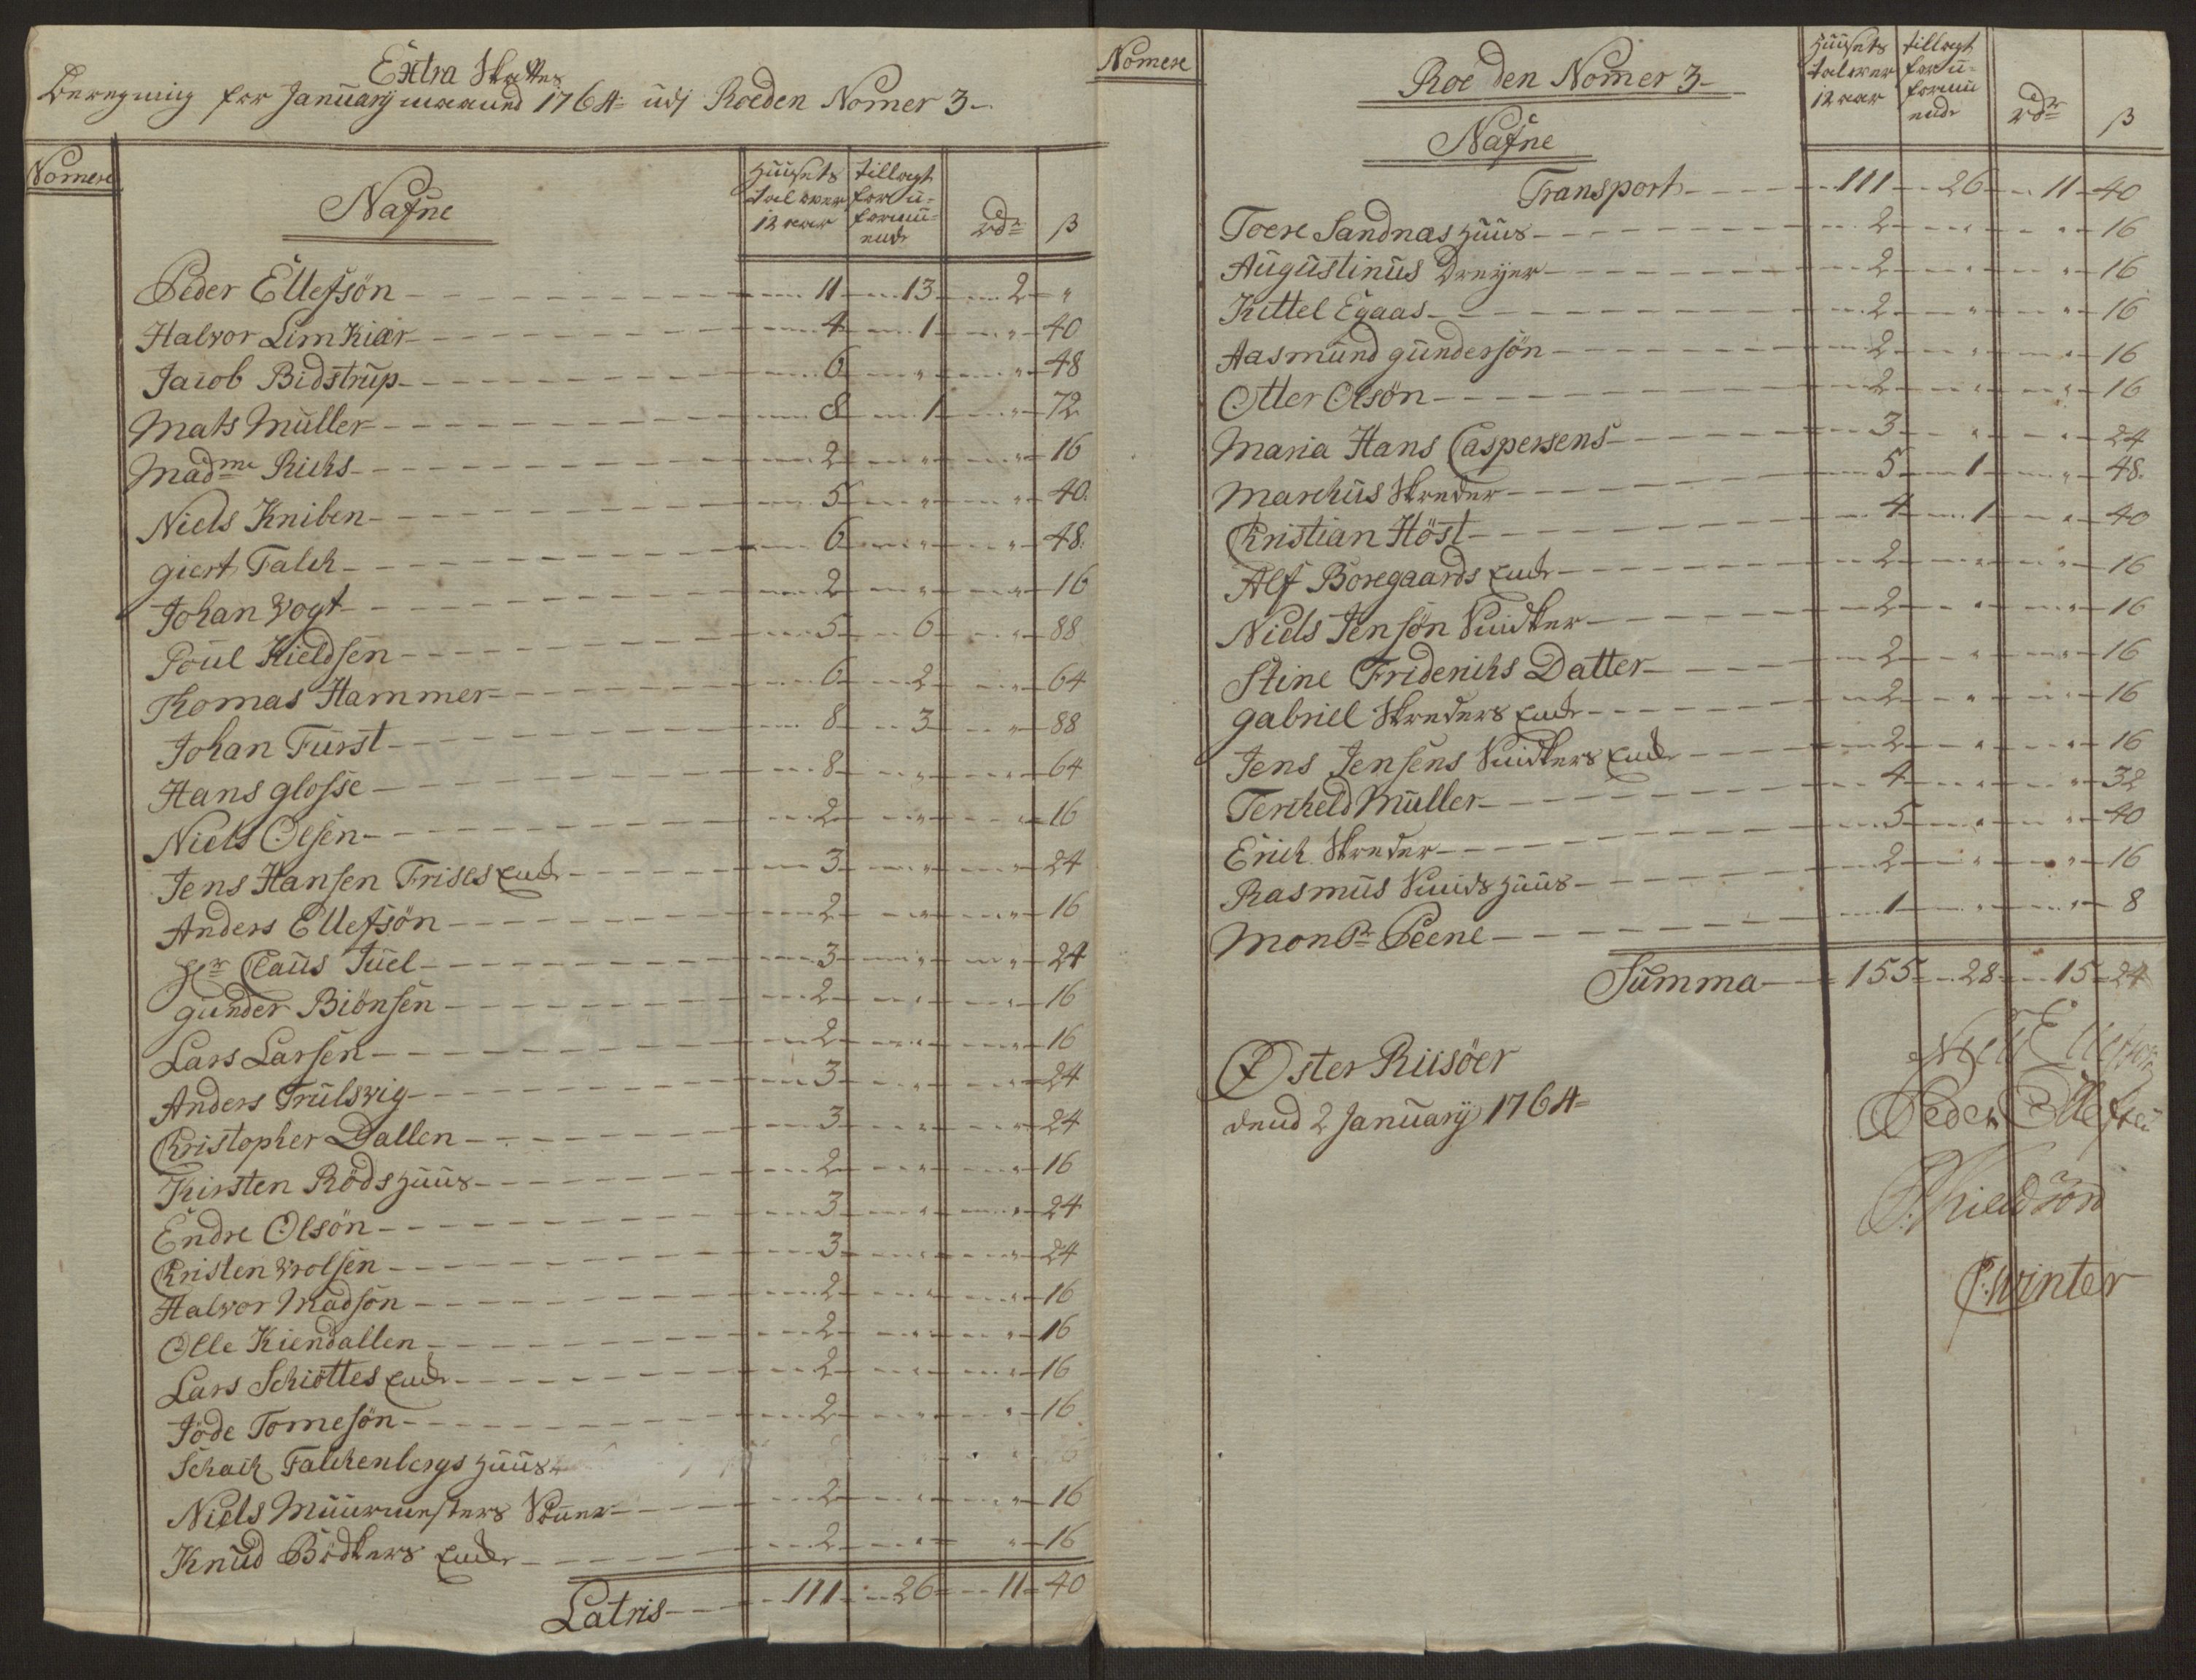 Extra Skattes
Beregning for Januarij maaned 1764 udj Roeden Nomer 3
Nomere
Nafne
Huusets tal over 12 aar
tillagt for u-formuende
rdr
β
Peder Ellefsön 11 13 2 "
Halvor Limkiær 4 1 " 40
Jacob Bidstrup 6 " " 48
Mats Müller 8 1 " 72
Madme Richs 2 " " 16
Niels Kniben 5 " " 40
giert Falch 6 " " 48
Johan Vogt 2 " " 16
Poul Kieldsen 5 6 " 88
Thomas Hammer 6 2 " 64
Johan Fürst 8 3 " 88
Hans glosse 8 " " 64
Niels Olsen 2 " " 16
Jens Hansen Frises Enke 3 " " 24
Anders Ellefsön 2 " " 16
Hr Claus Juel 3 " " 24
gunder Biönsen 2 " " 16
Lars Larsen 2 " " 16
Anders Trulsvig 3 " " 24
Christopher Dallen 3 " " 24
Kirsten Röds Huus 2 " " 16
Endre Olsön 3 " " 24
Christen Wolsen 3 " " 24
Halvor Madsön 2 " " 16
Olle Kiendallen 2 " " 16
Lars Schiöttes Enke 2 " " 16
Jöde Tomesön 2 " " 16
Schack Falchenbergs Huus
Niels Muurmesters 2 " " 16
Knud Bödkers Enke 2 " " 16
Latris 111 26 11 40
Nomere
Roe den Nomer 3
Nafne
Huusets tal over 12 aar
tillagt for u-formuende
rdr
β
Transport 111 26 11 40
Toere Sandnæs Huus 2 " " 16
Augustinus Dreyer 2 " " 16
Kittel Egaas 2 " " 16
Aasmund gundersön 2 " " 16
Otter Olsön 2 " " 16
Maria Hans Caspersens 3 " " 24
Marchus Skreder 5 1 " 48
Christian Höst 4 1 " 40
Alf Boregaards Enke 2 " " 16
Niels Jensön Snidker 2 " " 16
Stine Friderichs Datter 2 " " 16
gabriel Skreders Enke 2 " " 16
Jens Jensens Snidkers Enke 2 " " 16
Tercheld Müller 4 " " 32
Erich Skreder 5 " " 40
Rasmus Smids Huus 2 " " 16
Monsr Peene 1 " " 8
Summa 155 28 15 24
Øster Riisöer
dend 2 Januarij 1764
Niels Ellefsön
Peder Ellefsen
P. Kieldsön
P. Winter